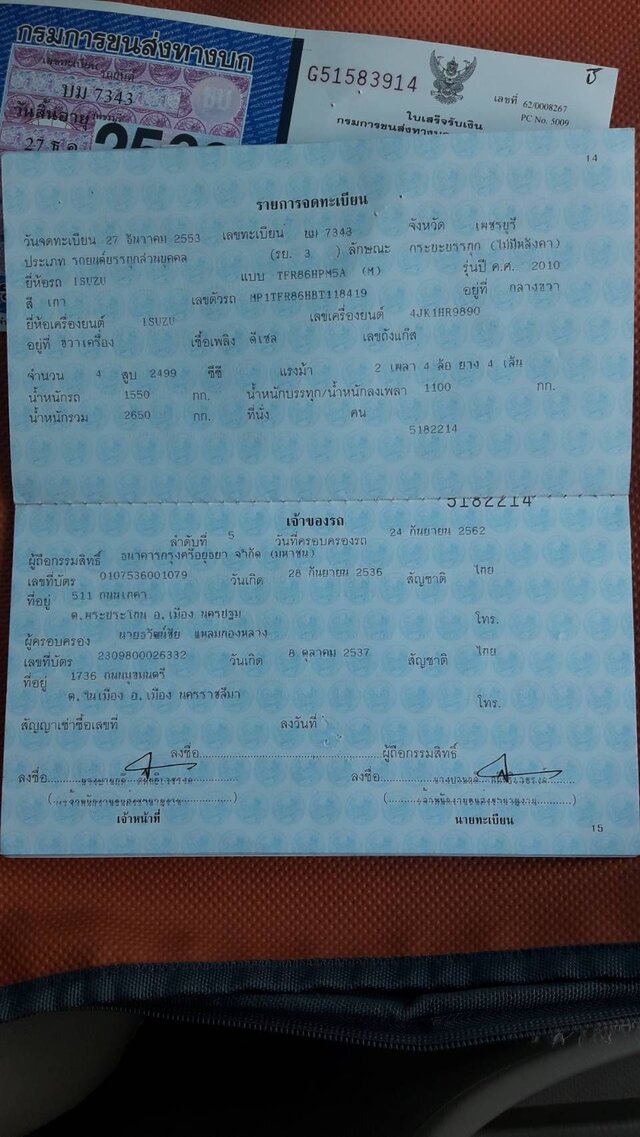 กรมการขนส่งทางบก
บม 7343
วันสิ้นอายุ
27 ธ.ค.
G51583914
เลขที่ 62/0008267
PC No. 5009
ใบเสร็จรับเงิน
กรมการขนส่งทางบก
14
รายการจดทะเบียน
วันจดทะเบียน 27 ธันวาคม 2553 เลขทะเบียน บม 7343 จังหวัด เพชรบุรี
ประเภท รถยนต์บรรทุกส่วนบุคคล (รย. 3 ) ลักษณะ กระบะบรรทุก (ไม่มีหลังคา)
ยี่ห้อรถ ISUZU แบบ TFR86HPM5A (M) รุ่นปี ค.ศ. 2010
สี เทา เลขตัวรถ MP1TFR86HBT118419 อยู่ที่ กลางขวา
ยี่ห้อเครื่องยนต์ ISUZU เลขเครื่องยนต์ 4JK1HR9890
อยู่ที่ ขวาเครื่อง เชื้อเพลิง ดีเซล เลขถังแก๊ส
จำนวน 4 สูบ 2499 ซีซี แรงม้า 2 เพลา 4 ล้อ ยาง 4 เส้น
น้ำหนักรถ 1550 กก. น้ำหนักบรรทุก/น้ำหนักลงเพลา 1100 กก.
น้ำหนักรวม 2650 กก. ที่นั่ง คน
5182214
5182214
เจ้าของรถ
ลำดับที่ 5 วันที่ครอบครองรถ 24 กันยายน 2562
ผู้ถือกรรมสิทธิ์ ธนาคารกรุงศรีอยุธยา จำกัด (มหาชน)
เลขที่บัตร 0107536001079 วันเกิด 28 กันยายน 2536 สัญชาติ ไทย
ที่อยู่ 511 ถนนเพชรเกษม
ต.พระประโทน อ.เมือง นครปฐม โทร.
ผู้ครอบครอง นายธวัฒน์ชัย แหลมทองหลาง
เลขที่บัตร 2309800026332 วันเกิด 8 ตุลาคม 2537 สัญชาติ ไทย
ที่อยู่ 1736 ถนนมุขมนตรี
ต.ในเมือง อ.เมือง นครราชสีมา โทร.
สัญญาเช่าซื้อเลขที่ ลงวันที่
ลงชื่อ ผู้ถือกรรมสิทธิ์
ลงชื่อ ลงชื่อ
เจ้าหน้าที่ นายทะเบียน
15